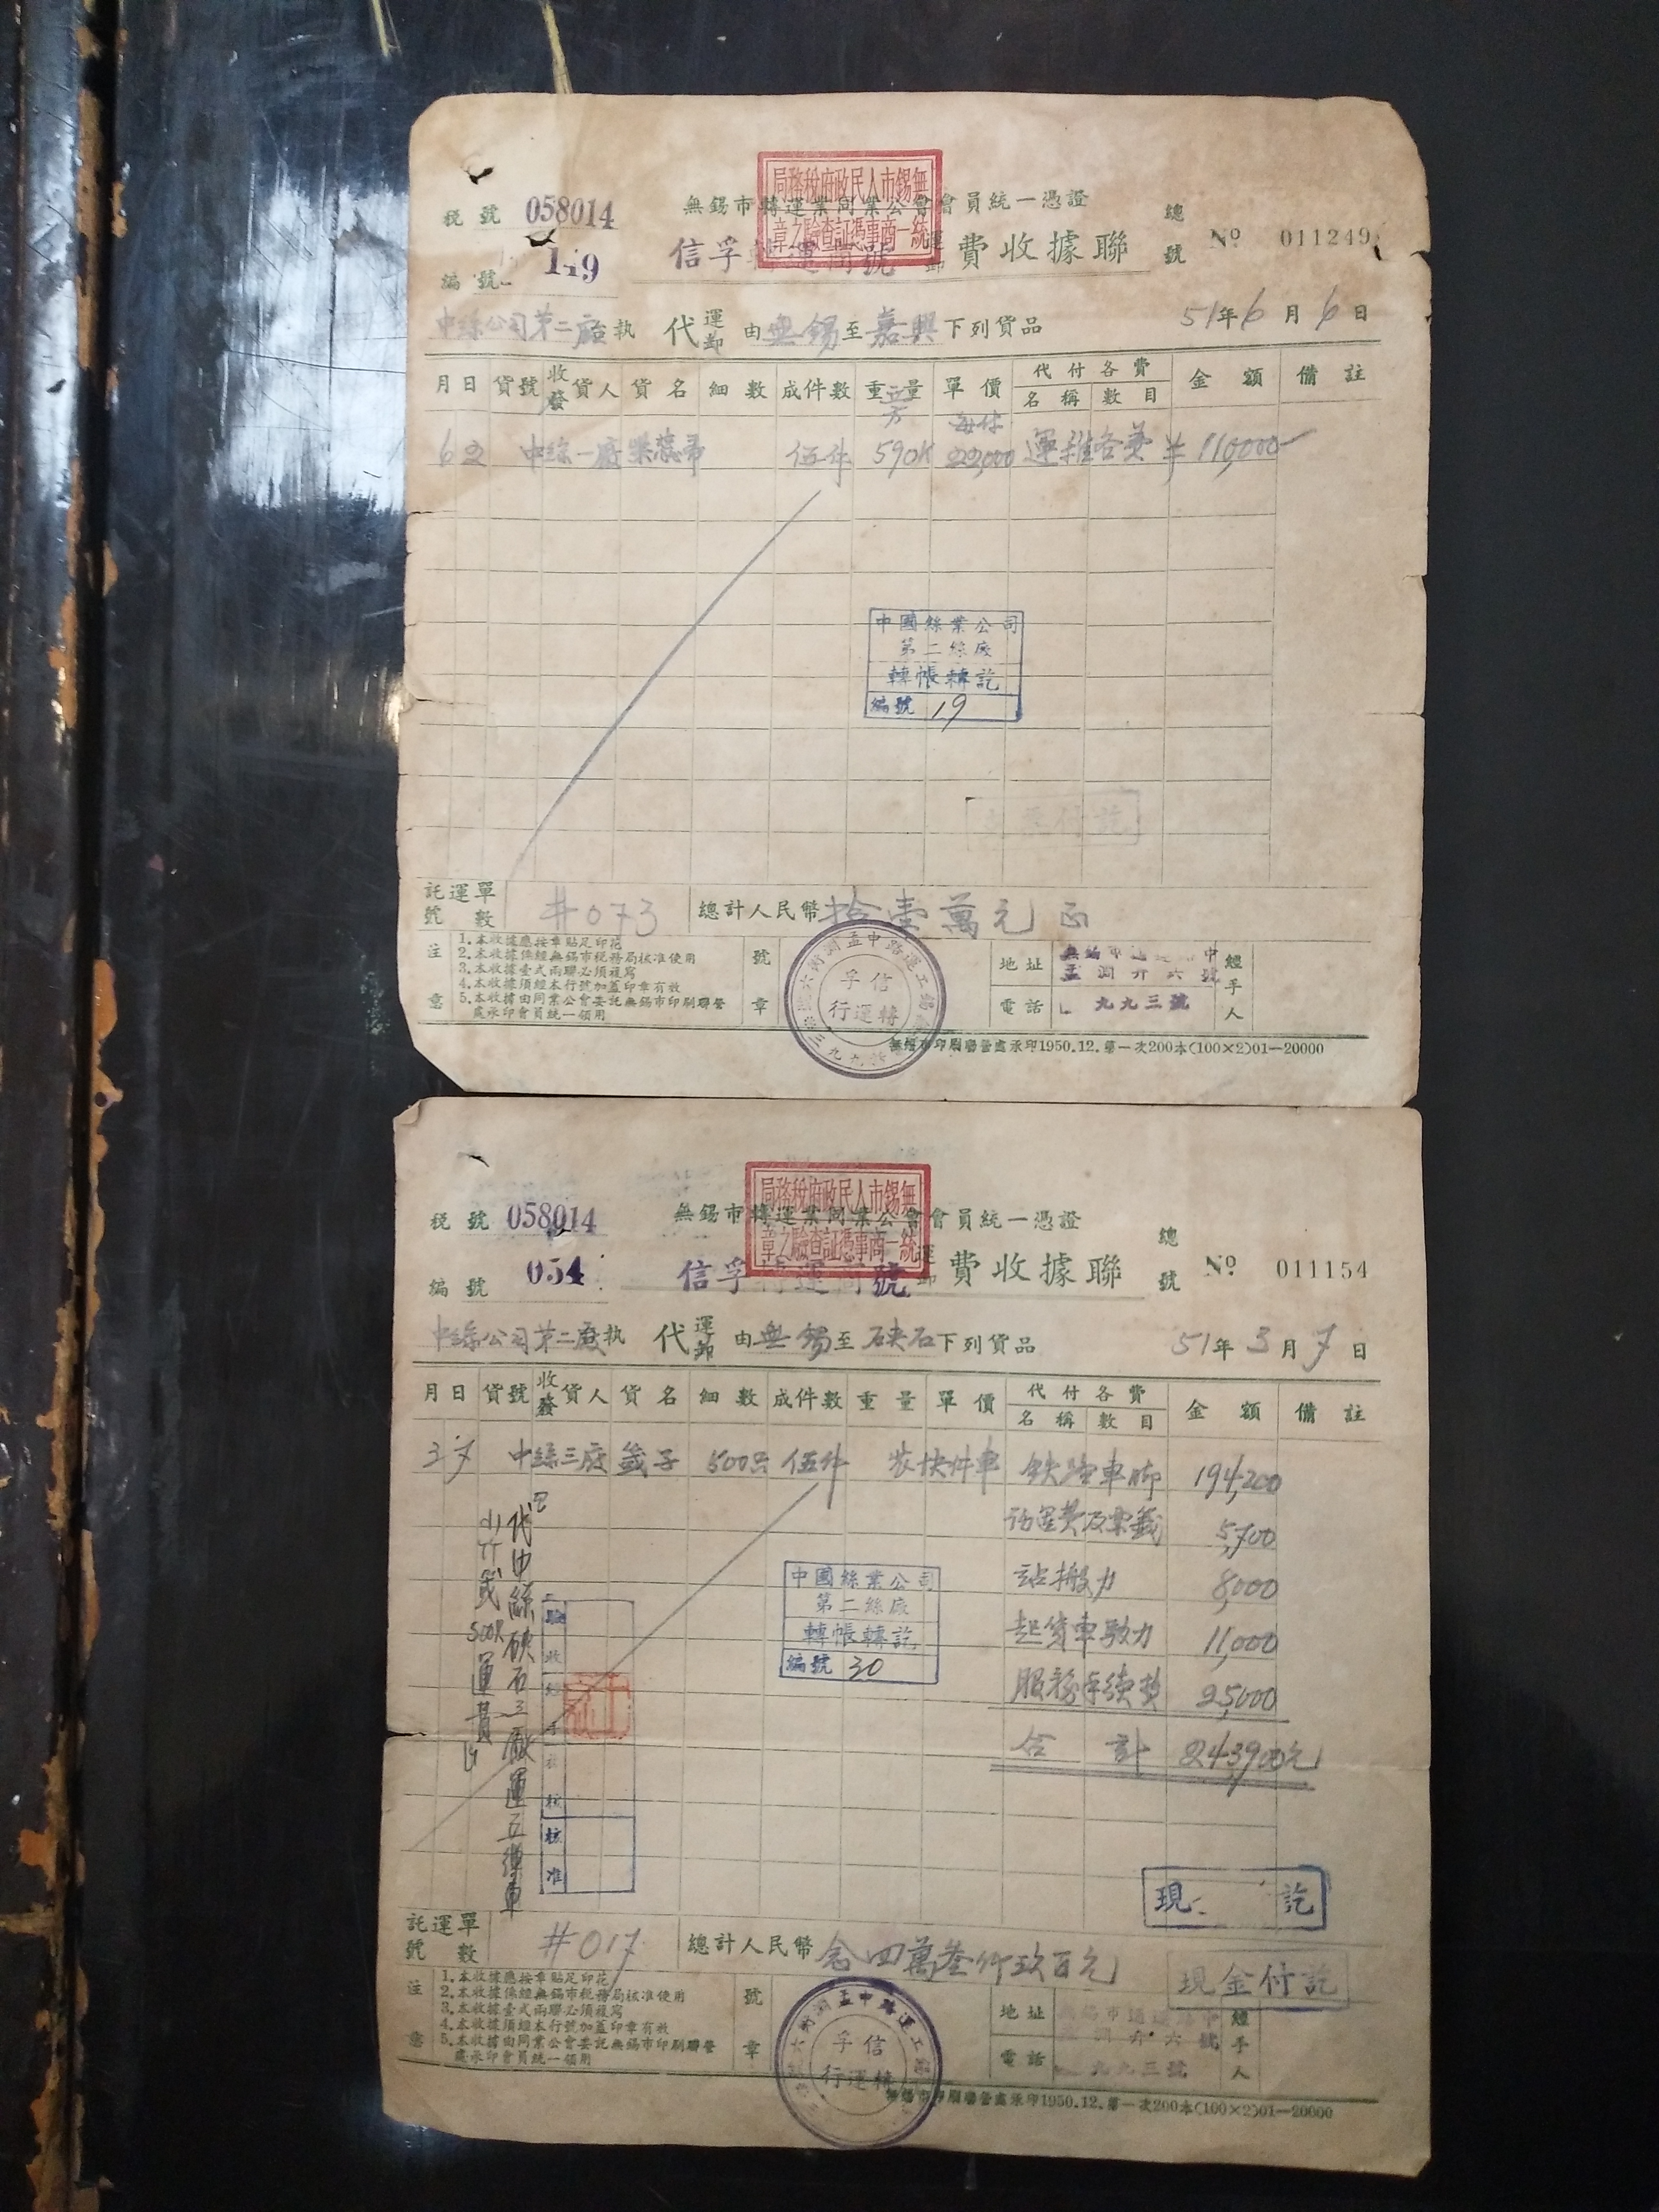 無錫市人民政府稅務局
統一商事憑証查驗之章
稅號 058014
無錫市轉運業同業公會會員統一憑證
總號 Nº 011249
編號 149
信孚轉運商號 運卸費收據聯
中絲公司第二廠台執 代運卸 由無錫至嘉興下列貨品 51年6月6日
月 日 貨號 收發貨人 貨名 細數 成件數 重量 單價 代付各費 名稱 數目 金額 備註
每件
6 2 中絲一廠 伍件 590K 22,000 運雜各費 ¥110,000
中國絲業公司
第二絲廠
轉帳轉訖
編號 19
付訖
託運單號數 #073 總計人民幣拾壹萬元正
注意
1.本收據應按章貼足印花
2.本收據係經無錫市稅務局核准使用
3.本收據壹式兩聯必須複寫
4.本收據須經本行號加蓋印章有效
5.本收據由同業公會委託無錫市印刷聯營
處承印會員統一領用
號章
信孚
轉運行
地址 無錫市通運路中
孟淵弄六號
電話 九九三號
經手人
無錫市印刷聯營處承印1950.12.第一次200本(100×2)01—20000
無錫市人民政府稅務局
統一商事憑証查驗之章
稅號 058014
無錫市轉運業同業公會會員統一憑證
總號 Nº 011154
編號 054
信孚轉運商號 運卸費收據聯
中絲公司第二廠執 代運卸 由無錫至硤石下列貨品 51年3月7日
月 日 貨號 收發貨人 貨名 細數 成件數 重量 單價 代付各費 名稱 數目 金額 備註
3 7 中絲三廠 籤子 500只 伍件 裝快件車 鉄路車脚 194,200
託運費及票籤 5,700
站搬力 8,000
起貨車驳力 11,000
服務手續費 25,000
合計 243,900元
代中絲硤石三廠運
500只運費
中國絲業公司
第二絲廠
轉帳轉訖
編號 30
驗收
核准
現 訖
託運單號數 #017 總計人民幣念四萬叁仟玖百元
現金付訖
注意
1.本收據應按章貼足印花
2.本收據係經無錫市稅務局核准使用
3.本收據壹式兩聯必須複寫
4.本收據須經本行號加蓋印章有效
5.本收據由同業公會委託無錫市印刷聯營
處承印會員統一領用
號章
信孚
轉運行
地址 無錫市通運路中
孟淵弄六號
電話 九九三號
經手人
無錫市印刷聯營處承印1950.12.第一次200本(100×2)01—20000